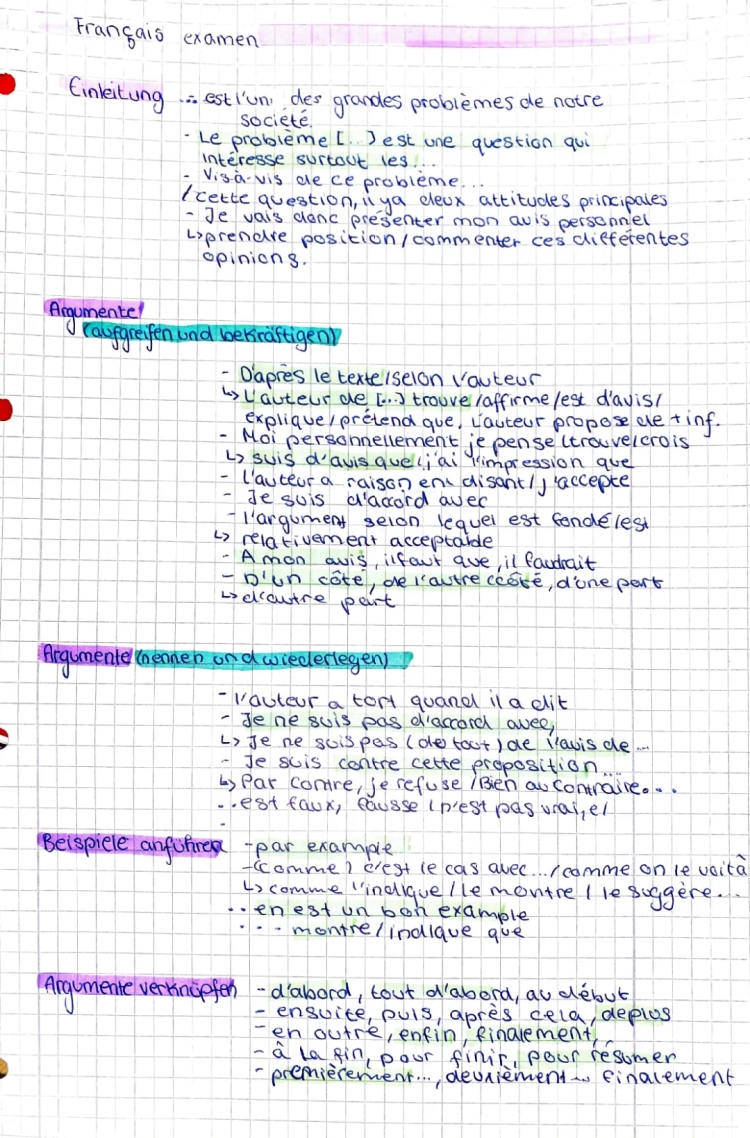 Français examen
Einleitung ... est l'un des grandes problèmes de notre
société.
- Le problème [...] est une question qui
intéresse surtout les...
- Vis-à-vis de ce problème...
/cette question, il ya deux attitudes principales
- Je vais donc présenter mon avis personnel
↳prendre position/commenter ces différentes
opinions.
Argumente
(aufgreifen und bekräftigen)
- D'après le texte/selon l'auteur
↳ L'auteur de [...] trouve/affirme/est d'avis/
explique/prétend que, L'auteur propose de + inf.
- Moi personnellement je pense (trouve/crois
↳ suis d'avis que (j'ai l'impression que
- L'auteur a raison en disant/j'accepte
- Je suis d'accord avec
- l'argument selon lequel est fondé/est
↳ relativement acceptable
- A mon avis, il faut que, il faudrait
- D'un côté, de l'autre côté, d'une part
↳ d'autre part
Argumente (nennen und wiederlegen)
- l'auteur a tort quand il a dit
- Je ne suis pas d'accord avec,
↳ Je ne suis pas (de tout) de l'avis de ...
- Je suis contre cette proposition...
↳ Par contre, je refuse /Bien au contraire...
...est faux, fausse (n'est pas vrai, e/
Beispiele anführen - par example
-(comme) c'est le cas avec.../comme on le voit à
↳ comme l'indique/le montre / le suggère...
... en est un bon example
... montre/indique que
Argumente verknüpfen - d'abord, tout d'abord, au début
- ensuite, puis, après cela, deplus
- en outre, enfin, finalement,
- à la fin, pour finir, pour résumer
- premièrement..., deuxièment ... finalement